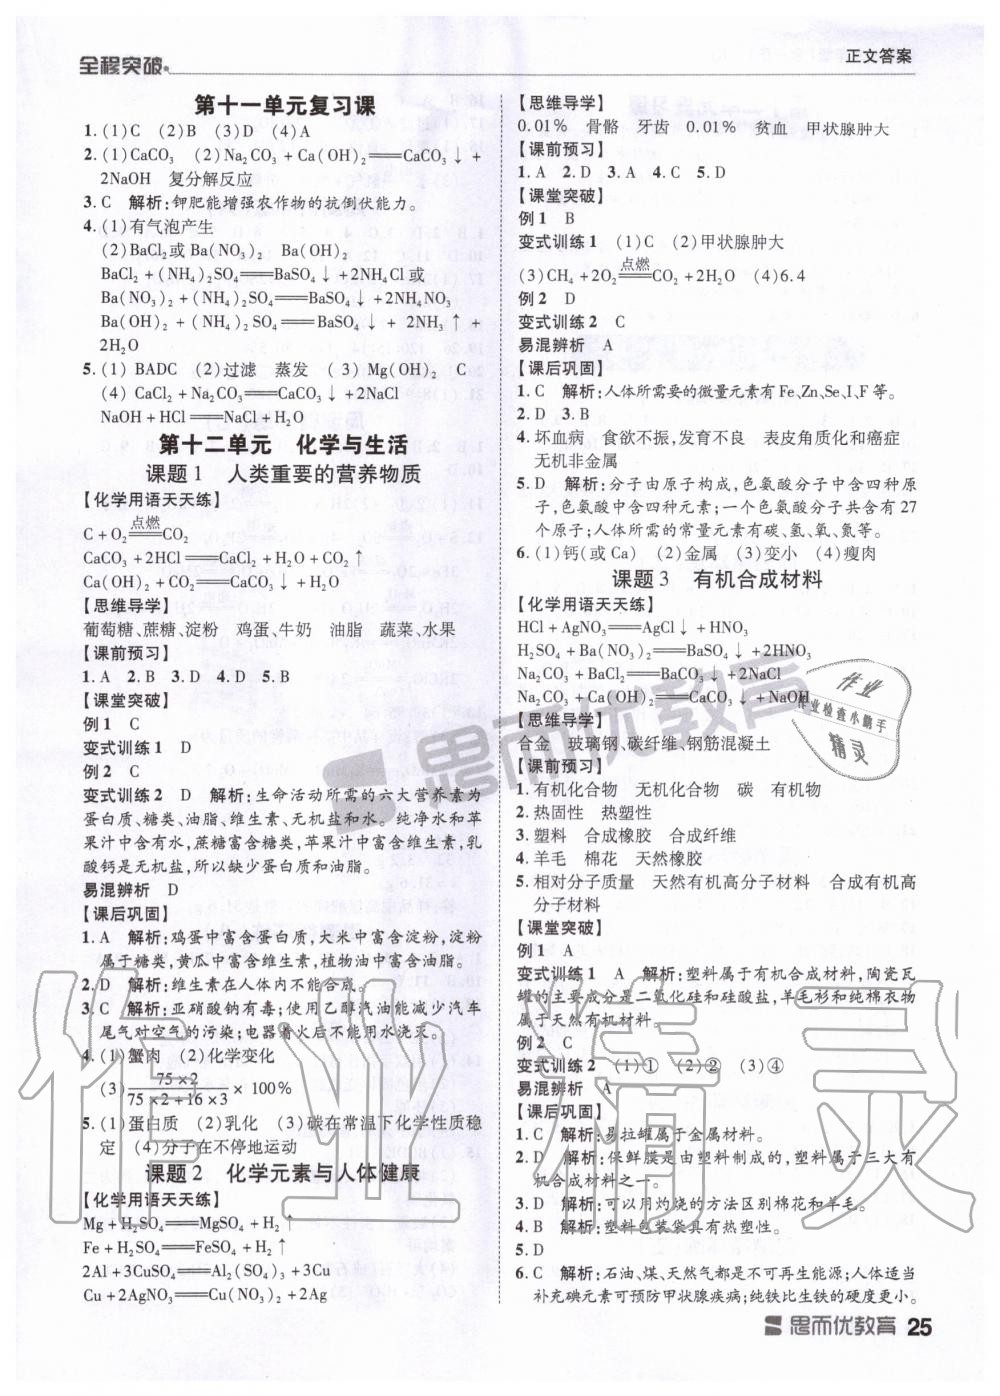 全程突破
正文答案
第十一单元复习课
1. (1)C (2)B (3)D (4)A
2. (1)CaCO₃ (2)Na₂CO₃+Ca(OH)₂══CaCO₃↓+
2NaOH 复分解反应
3. C 解析:钾肥能增强农作物的抗倒伏能力。
4. (1)有气泡产生
(2)BaCl₂或Ba(NO₃)₂ Ba(OH)₂
BaCl₂+(NH₄)₂SO₄══BaSO₄↓+2NH₄Cl或
Ba(NO₃)₂+(NH₄)₂SO₄══BaSO₄↓+2NH₄NO₃
Ba(OH)₂+(NH₄)₂SO₄══BaSO₄↓+2NH₃↑+
2H₂O
5. (1)BADC (2)过滤 蒸发 (3)Mg(OH)₂ C
(4)CaCl₂+Na₂CO₃══CaCO₃↓+2NaCl
NaOH+HCl══NaCl+H₂O
第十二单元 化学与生活
课题1 人类重要的营养物质
【化学用语天天练】
C+O₂══(点燃)CO₂
CaCO₃+2HCl══CaCl₂+H₂O+CO₂↑
Ca(OH)₂+CO₂══CaCO₃↓+H₂O
【思维导学】
葡萄糖、蔗糖、淀粉 鸡蛋、牛奶 油脂 蔬菜、水果
【课前预习】
1. A 2. B 3. D 4. D 5. B
【课堂突破】
例1 C
变式训练1 D
例2 C
变式训练2 D 解析:生命活动所需的六大营养素为
蛋白质、糖类、油脂、维生素、无机盐和水。纯净水和苹
果汁中含有水,蔗糖富含糖类,苹果汁中富含维生素,乳
酸钙是无机盐,所以缺少蛋白质和油脂。
易混辨析 D
【课后巩固】
1. A 解析:鸡蛋中富含蛋白质,大米中富含淀粉,淀粉
属于糖类,黄瓜中富含维生素,植物油中富含油脂。
2. D 解析:维生素在人体内不能合成。
3. C 解析:亚硝酸钠有毒;使用乙醇汽油能减少汽车
尾气对空气的污染;电器着火后不能用水浇灭。
4. (1)蟹肉 (2)化学变化
(3) 75×2/(75×2+16×3) ×100%
5. (1)蛋白质 (2)乳化 (3)碳在常温下化学性质稳
定 (4)分子在不停地运动
课题2 化学元素与人体健康
【化学用语天天练】
Mg+H₂SO₄══MgSO₄+H₂↑
Fe+H₂SO₄══FeSO₄+H₂↑
2Al+3CuSO₄══Al₂(SO₄)₃+3Cu
Cu+2AgNO₃══Cu(NO₃)₂+2Ag
【思维导学】
0.01% 骨骼 牙齿 0.01% 贫血 甲状腺肿大
【课前预习】
1. A 2. D 3. A 4. C 5. D
【课堂突破】
例1 B
变式训练1 (1)C (2)甲状腺肿大
(3)CH₄+2O₂══(点燃)CO₂+2H₂O (4)6.4
例2 D
变式训练2 C
易混辨析 A
【课后巩固】
1. C 解析:人体所需要的微量元素有Fe、Zn、Se、I、F等。
2. D 3. B
4. 坏血病 食欲不振,发育不良 表皮角质化和癌症
无机非金属
5. D 解析:分子由原子构成,色氨酸分子中含四种原
子,色氨酸中含四种元素;一个色氨酸分子共含有27
个原子;人体所需的常量元素有碳、氢、氧、氮等。
6. (1)钙(或Ca) (2)金属 (3)变小 (4)瘦肉
课题3 有机合成材料
【化学用语天天练】
HCl+AgNO₃══AgCl↓+HNO₃
H₂SO₄+Ba(NO₃)₂══BaSO₄↓+2HNO₃
Na₂CO₃+BaCl₂══BaCO₃↓+2NaCl
Na₂CO₃+Ca(OH)₂══CaCO₃↓+NaOH
【思维导学】
合金 玻璃钢、碳纤维、钢筋混凝土
【课前预习】
1. 有机化合物 无机化合物 碳 有机物
2. 热固性 热塑性
3. 塑料 合成橡胶 合成纤维
4. 羊毛 棉花 天然橡胶
5. 相对分子质量 天然有机高分子材料 合成有机高
分子材料
【课堂突破】
例1 A
变式训练1 A 解析:塑料属于有机合成材料,陶瓷瓦
罐的主要成分是二氧化硅和硅酸盐,羊毛衫和纯棉衣物
属于天然有机材料。
例2 C
变式训练2 (1)① (2)② (3)④
易混辨析 A
【课后巩固】
1. C 解析:易拉罐属于金属材料。
2. D 解析:保鲜膜是由塑料制成的,塑料属于三大有
机合成材料之一。
3. D 解析:可以用灼烧的方法区别棉花和羊毛。
4. B 解析:塑料包装袋具有热塑性。
5. D
6. C 解析:石油、煤、天然气都是不可再生能源;人体适当
补充碘元素可预防甲状腺疾病;纯铁比生铁的硬度更小。
思而优教育 25
思而优教育
作业
作业检查小助手
精灵
作业精灵